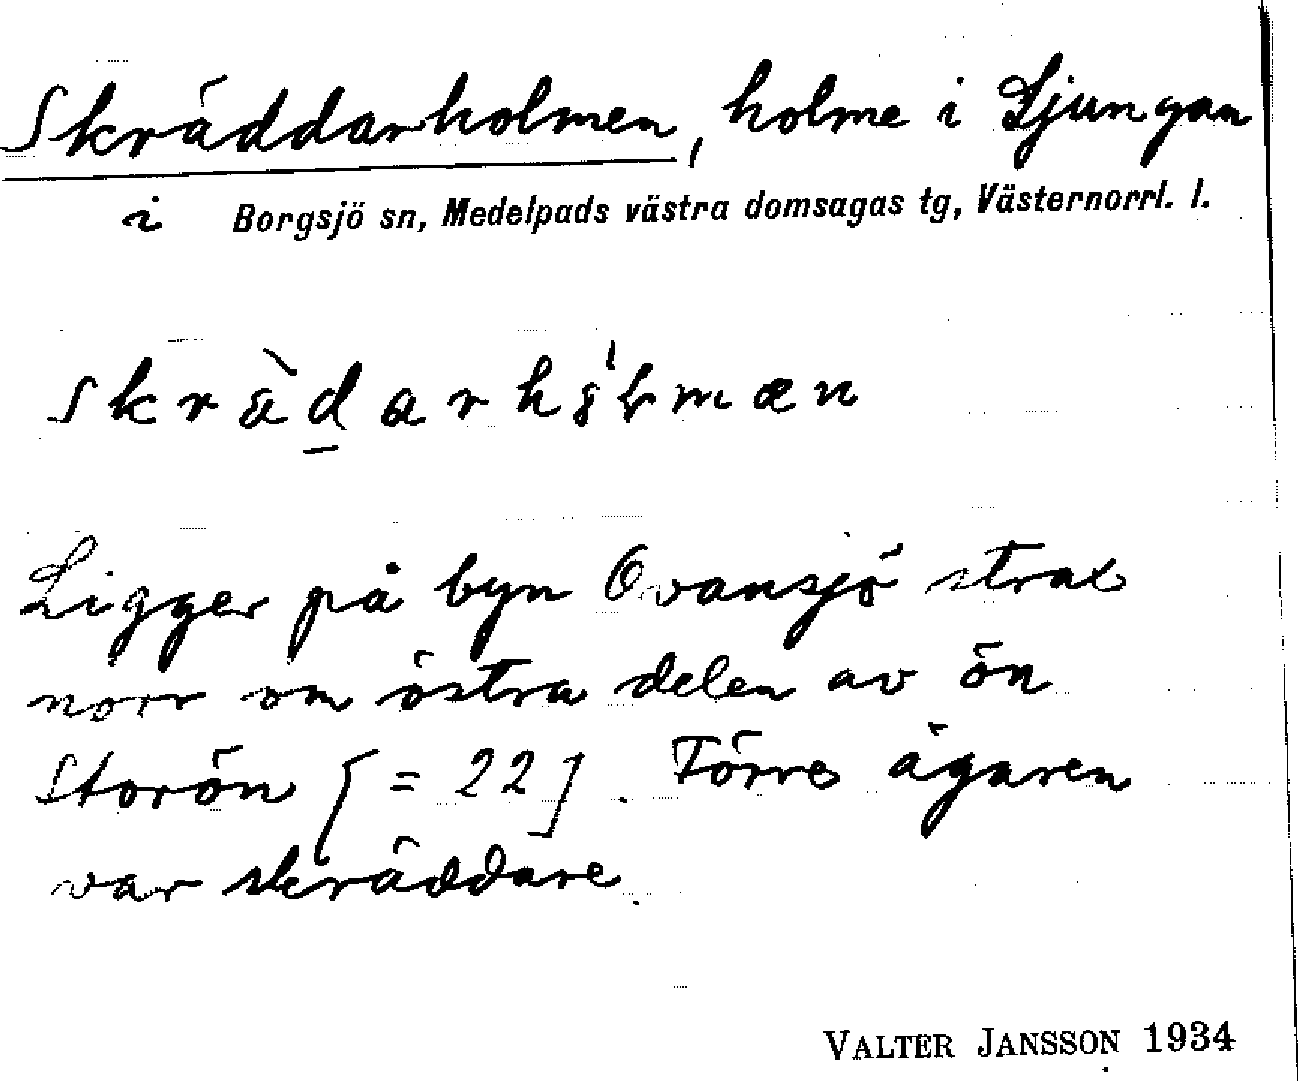 Skräddarholmen, holme i Ljungan
i Borgsjö sn, Medelpads västra domsagas tg, Västernorrl. l.
Ligger på byn Ovansjö strax
norr om östra delen av ön
Storön [= 22]. Förre ägaren
var skräddare.
VALTER JANSSON 1934